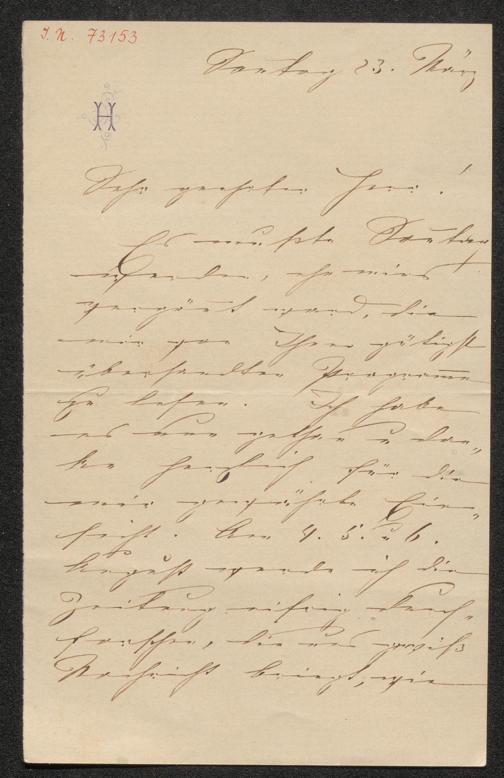 J. N. 73153
Sontag 23. März
H
Sehr geehrter Herr!
Es mußte Sontag
werden, ehe mirs
vergönt ward, die
mir von Ihnen gütigst
übersandten Programme
zu lesen. Ich habe
es nun gethan u dan-
ke herzlich für die
mir gewährte Ein-
sicht. Am 4. 5. u 6.
August werde ich die
Zeitung eifrig durch-
forschen, die uns gewiß
Nachricht bringt, wie